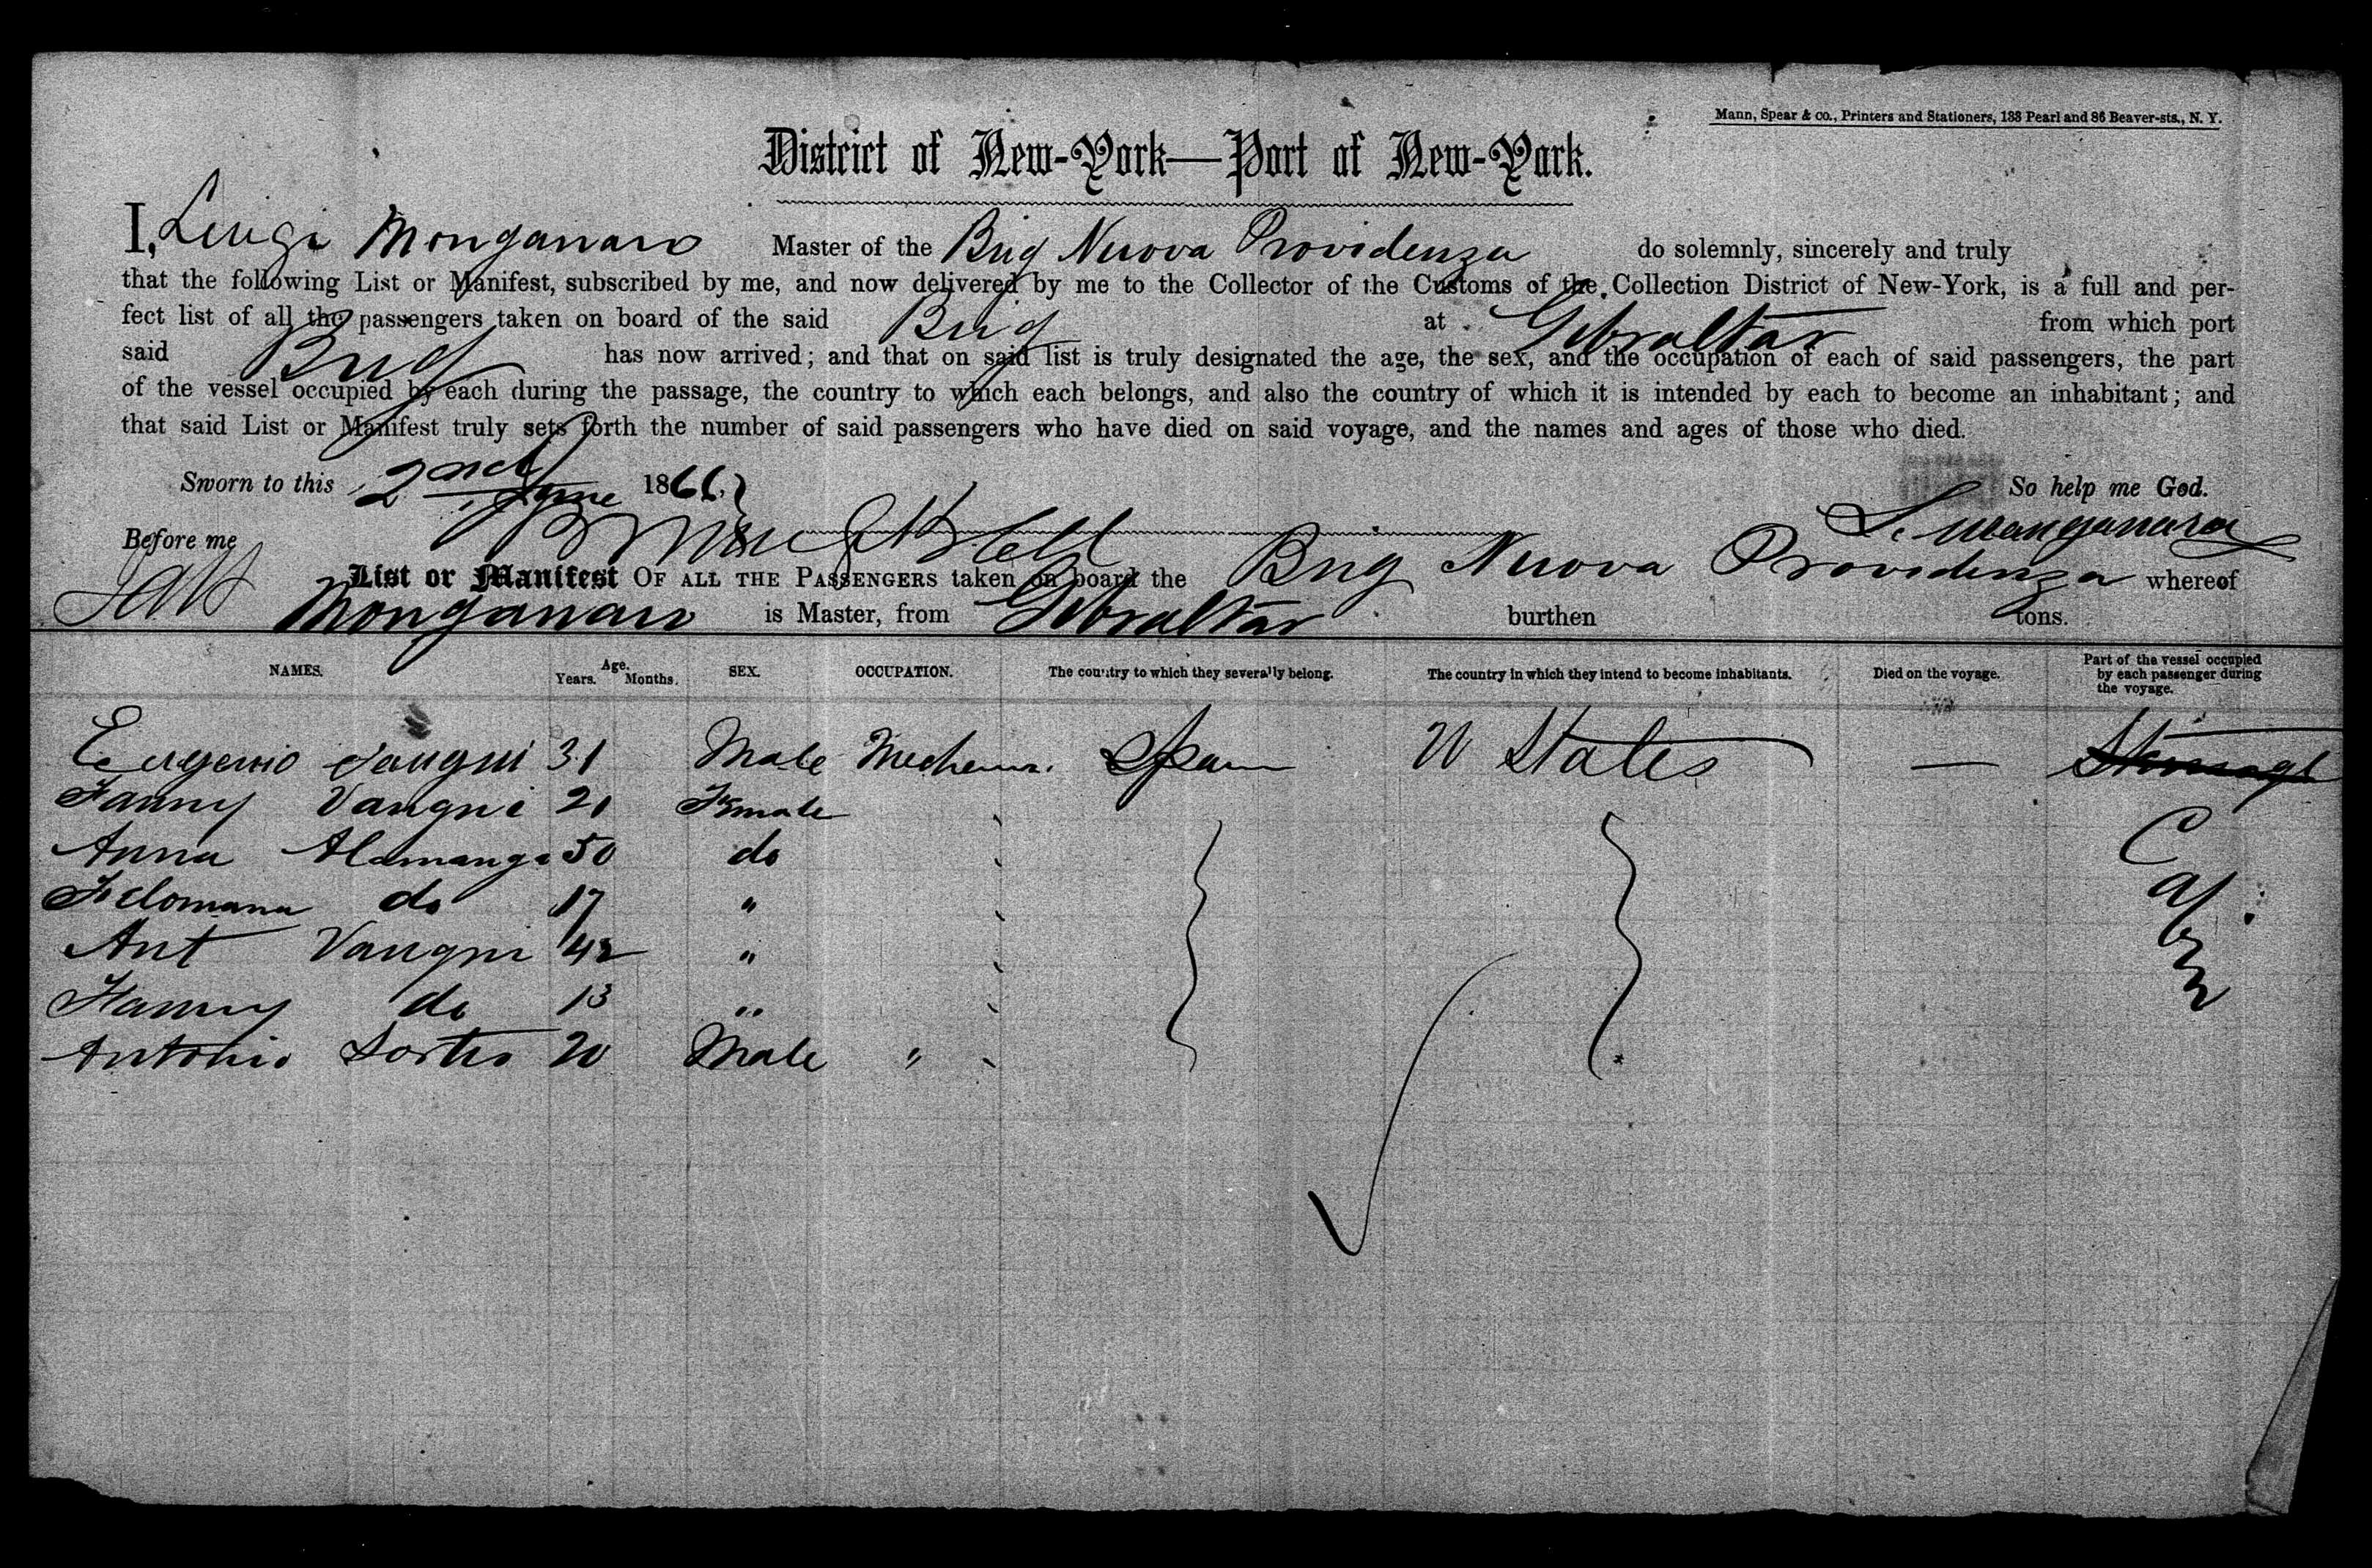 Mann, Spear & co., Printers and Stationers, 133 Pearl and 86 Beaver-sts., N. Y.
District of New-York—Port of New-York.
I, Luigi Monganaro Master of the Brig Nuova Providenza do solemnly, sincerely and truly
that the following List or Manifest, subscribed by me, and now delivered by me to the Collector of the Customs of the Collection District of New-York, is a full and per-
fect list of all the passengers taken on board of the said Brig at Gibraltar from which port
said Brig has now arrived; and that on said list is truly designated the age, the sex, and the occupation of each of said passengers, the part
of the vessel occupied by each during the passage, the country to which each belongs, and also the country of which it is intended by each to become an inhabitant; and
that said List or Manifest truly sets forth the number of said passengers who have died on said voyage, and the names and ages of those who died.
Sworn to this 2nd June 1866 So help me God.
Before me
List or Manifest OF ALL THE PASSENGERS taken on board the Brig Nuova Providenza whereof
Monganaro is Master, from Gibraltar burthen tons.
NAMES. Age. Years. Months. SEX. OCCUPATION. The country to which they severally belong. The country in which they intend to become inhabitants. Died on the voyage. Part of the vessel occupied by each passenger during the voyage.
Eugenio Vangni 31 Male Spain U States — Steerage
Fanny Vangni 21 Female
Anna 50 do
Felomana do 17 "
Ant Vangni 42 "
Fanny do 13 "
Antonio 20 Male "
Cabin